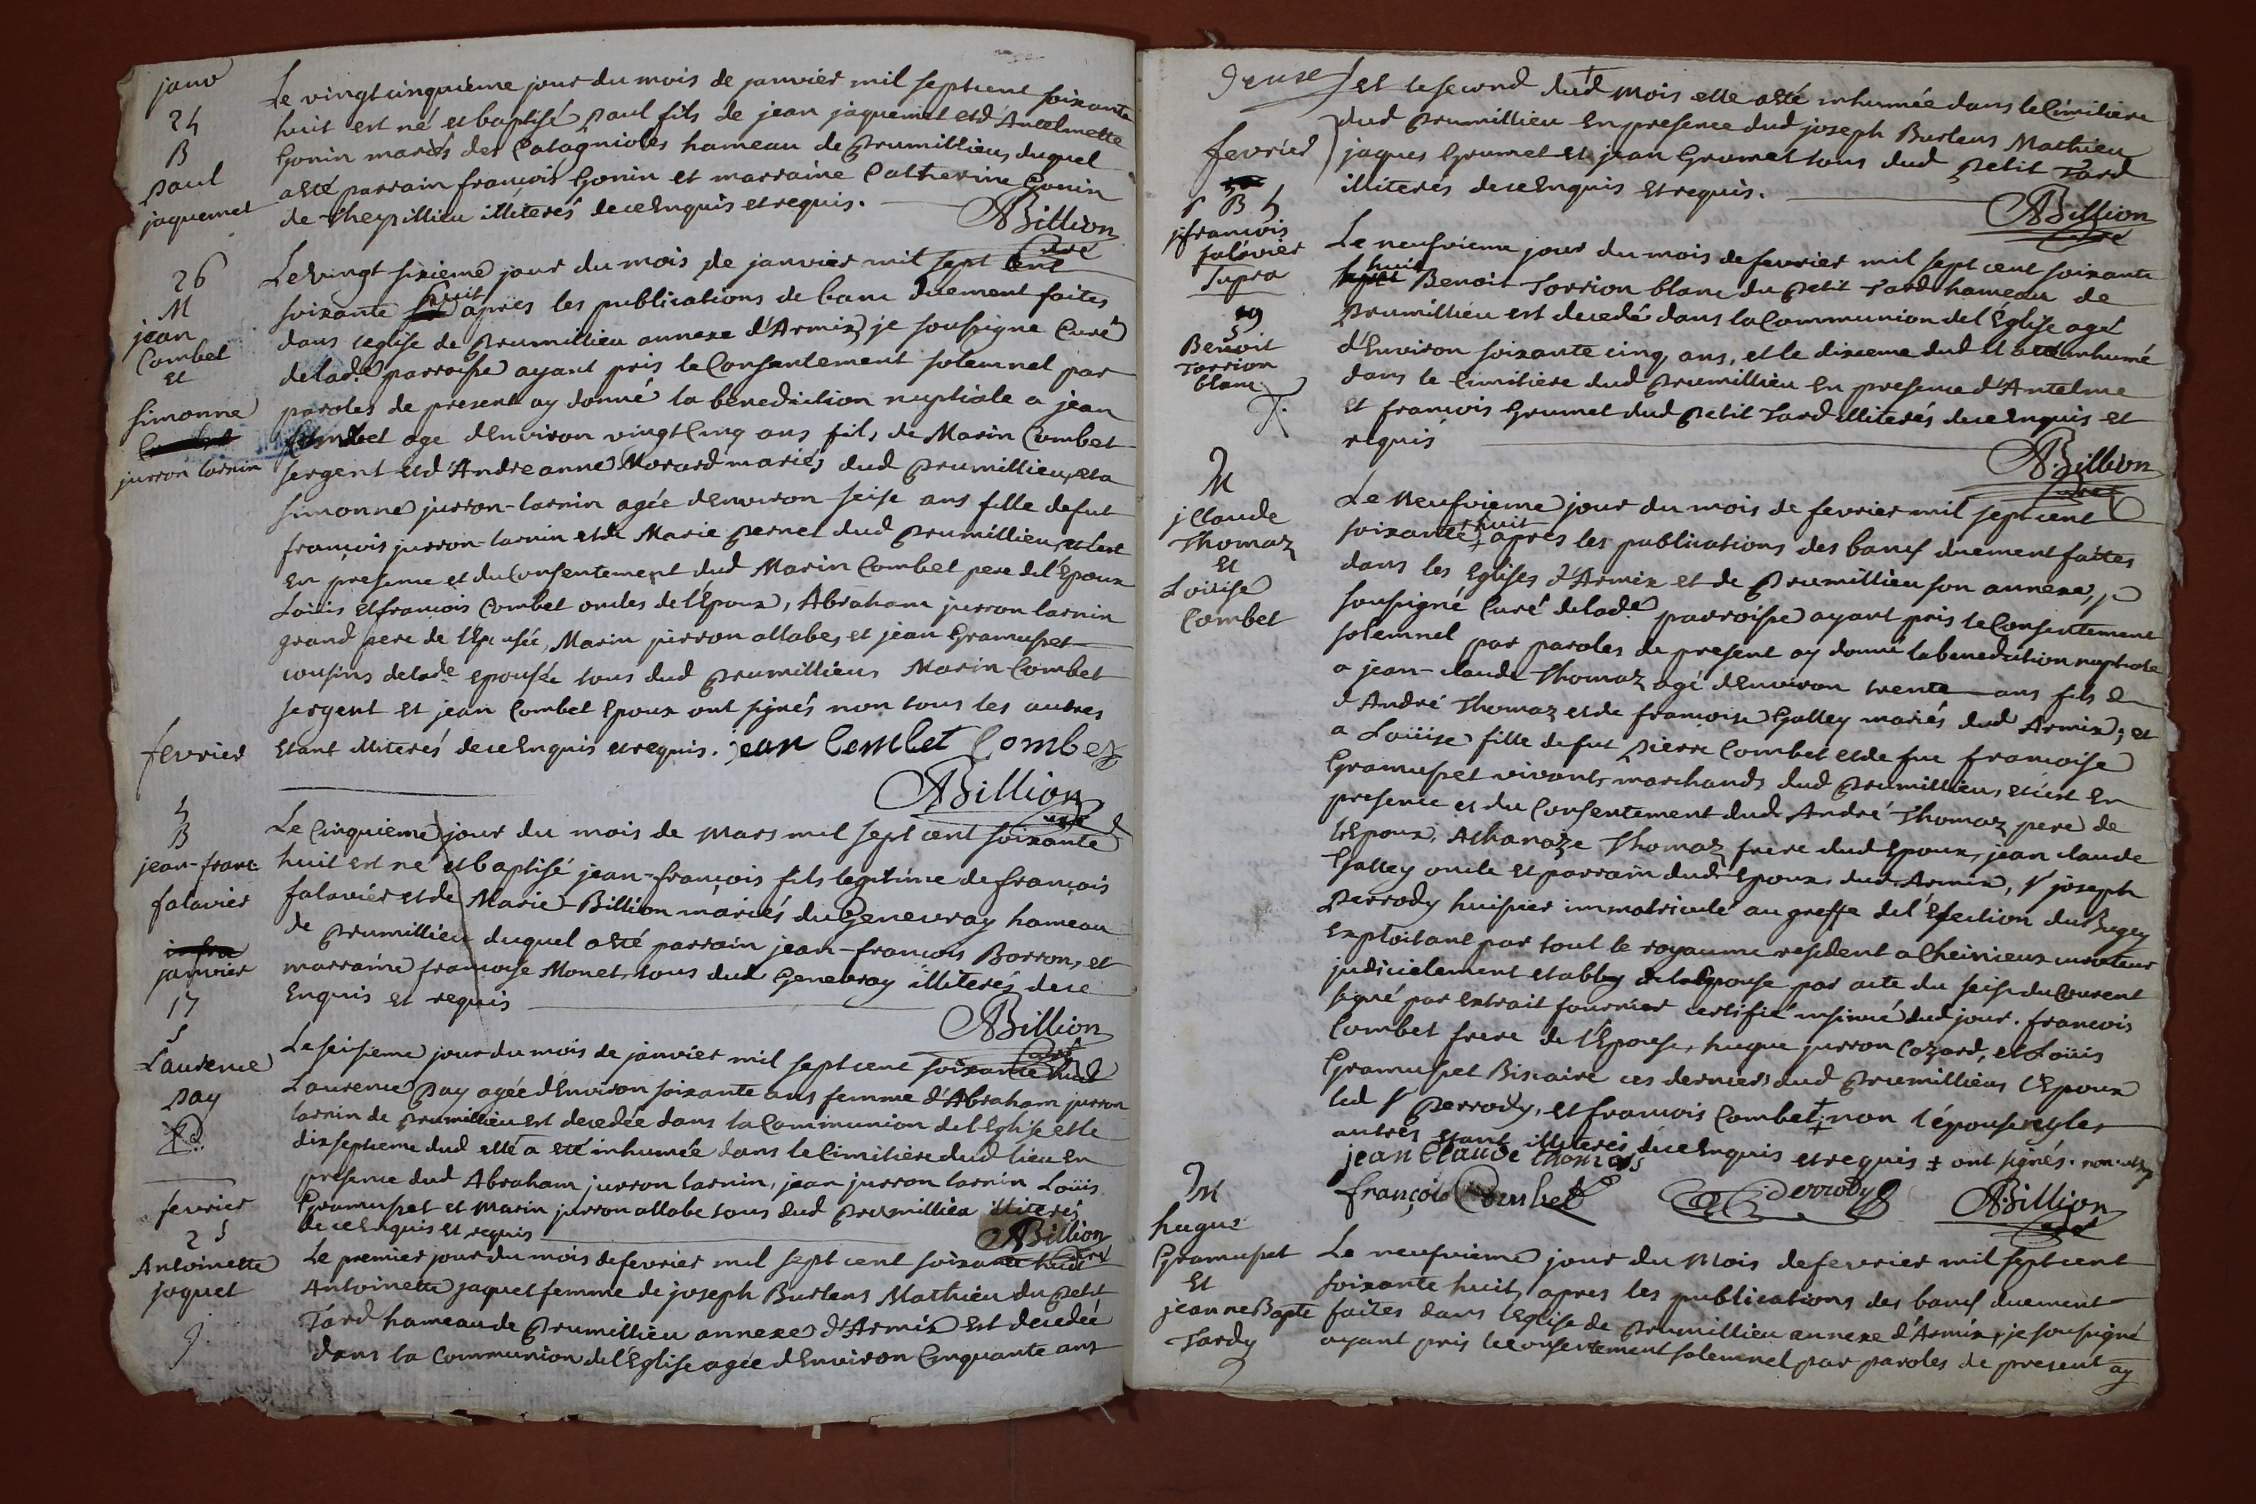 janv
25
B
paul
jaquemet
Le vingt cinquième jour du mois de janvier mil sept cent soixante
huit est né et baptisé paul fils de jean jaquemet et d'Antelmette
Gonin mariés des Catagnioles hameau de prumillieu duquel
a eté parrain françois Gonin et marraine Catherine Gonin
de Theyzillieu illiterés de ce Enquis et requis.
ABillion
Curé
26
M
jean
Combet
et
simonne
jurron larnin
Le vingt sixieme jour du mois de janvier mil sept cent
soixante huit après les publications de banc duement faites
dans leglise de prumillieu annexe d'Armix je soussigne Curé
de lad.e parroisse ayant pris le Consentement solemnel par
paroles de present ay donné la benediction nuptiale a jean
Combet age dEnviron vingt Cinq ans fils de Marin Combet
sergent et d'Andreanne Morard mariés dud prumillieu, et a
simonne jurron-larnin agée dEnviron seise ans fille de fut
françois jurron-larnin et de Marie pernet dud prumillieu, et c'est
En presence et du Consentement dud Marin Combet pere de l'Epoux
Loüis et françois Combet oncles de l'Epoux, Abraham jurron larnin
grand pere de l'Epousée, Marin jurron allabe, et jean Gramuset
cousins de lade epousée tous dud prumillieu Marin Combet
sergent et jean Combet Epoux ont signés non tous les autres
Etant illiterés de ce Enquis et requis. jean Combet Combet
ABillion
Curé
fevrier
5
B
jean-franc
falavier
Le Cinquieme jour du mois de mars mil sept cent soixante
huit est né et baptisé jean-françois fils legitime de françois
falavier et de Marie-Billion mariés du Genevray hameau
de prumillieu duquel a eté parrain jean-françois Borron, et
marraine françoise Monet, tous dud Genevray illiterés de ce
Enquis et requis
ABillion
Curé
infra
janvier
17
S
Laurence
pay
Le seisieme jour du mois de janvier mil sept cent soixante huit
Laurence pay agée dEnviron soixante ans femme d'Abraham jurron
larnin de prumillieu est decedée dans la Communion de l'Eglise et le
dixseptieme dud elle a eté inhumée dans le Cimitiere dud lieu En
presence dud Abraham jurron larnin, jean jurron larnin Loüis
Gramuset et Marin jurron allabe tous dud prumillieu illiterés
de ce Enquis et requis
ABillion
Curé
fevrier
2 S
Antoinette
jaquet
Le premier jour du mois de fevrier mil sept cent soixante huit
Antoinette jaquet femme de joseph Burlens Mathieu du petit
Tard hameau de prumillieu annexe d'Armix est decedée
dans la Communion de l'Eglise agée dEnviron Cinquante ans
et le second dud mois elle a eté inhumée dans le Cimitiere
dud prumillieu En presence dud joseph Burlens Mathieu
jaques Grumet et jean Grumet tous dud petit Tard
illiterés de ce Enquis et requis.
ABillion
Curé
fevrier
B 5
jfrancois
falavier
supra
9
S
Benoit
Torrion
blanc
Le neufvieme jour du mois de fevrier mil sept cent soixante
huit Benoit Torrion blanc du petit Tard hameau de
prumillieu est decedé dans la Communion de l'Eglise agé
d'Environ soixante cinq ans, et le dixieme dud il a eté inhumé
dans le Cimitiere dud prumillieu En presence d'Antelme
et françois Grumet dud petit Tard illiterés de ce Enquis et
requis
ABillion
Curé
M
jClaude
Thomaz
et
Loüise
Combet
Le Neufvieme jour du mois de fevrier mil sept cent
soixante huit après les publications des bancs duement faites
dans les Eglises d'Armix et de prumillieu son annexe, je
soussigné Curé de lad.e parroisse ayant pris le Consentement
solemnel par paroles de present ay donné la benediction nuptiale
a jean-claude Thomaz agé dEnviron trente ans fils de
d'André Thomaz et de françoise Galley mariés dud Armix; et
a Loüise fille de fut pierre Combet et de fue françoise
Gramuset vivants marchands dud prumillieu, et c'est En
presence et du Consentement dud André Thomaz pere de
l'Epoux, Athanaze Thomaz frere dud Epoux, jean claude
Galley oncle et parrain dud Epoux, dud Armix, sr joseph
perrody huissier immatriculé au greffe de l'Election du Bugey
Exploitant par tout le royaume resident a Cheinieux curateur
judicielement etably de lad Epouse par acte du seise du Courent
signé par extrait fournier certifié insinué dud jour. françois
Combet frere de l'Epouse, hugue jurron Cozard, et Loüis
Gramuset Biscaire ces derniers dud prumillieu l'Epoux
led sr perrody, et françois Combet ‡ non l'épouse et les
autres etant illiterés de ce Enquis et requis ‡ ont signés.
jean Claude thomas
françois Combet perrody ABillion
Curé
M
hugue
Gramuset
et
jeanne Bapte
Tardy
Le neufvieme jour du Mois de fevrier mil sept cent
soixante huit, apres les publications des bancs duement
faites dans l'Eglise de prumillieu annexe d'Armix, je soussigné
ayant pris le consentement solemnel par paroles de present ay